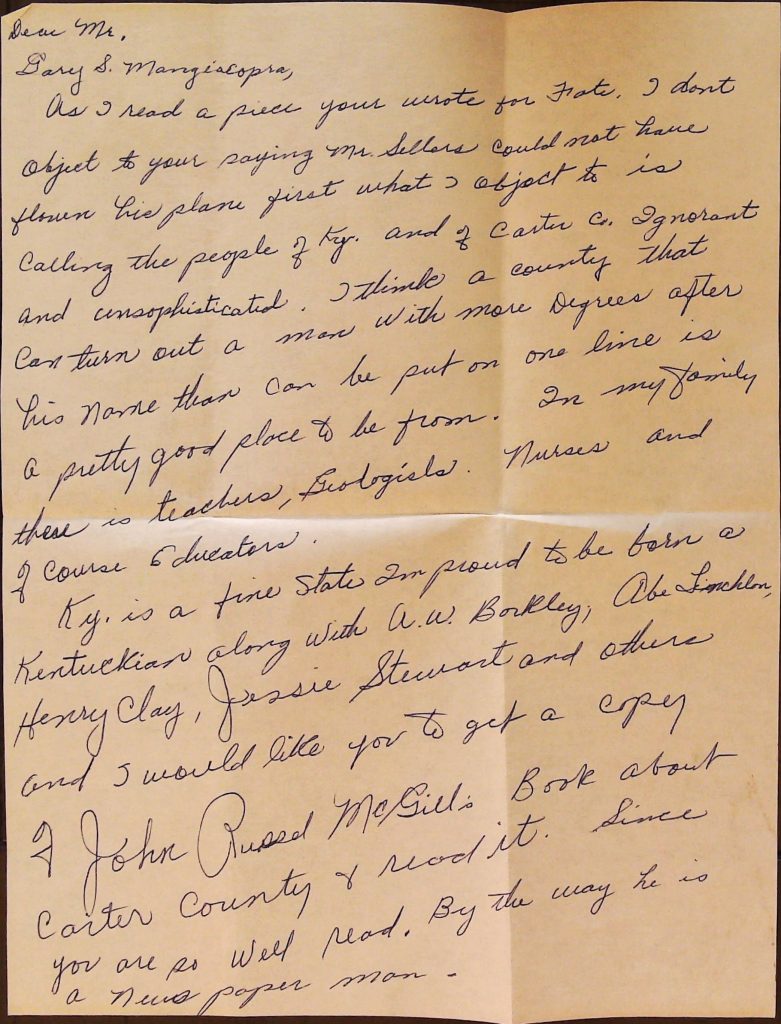 Dear Mr.
Gary S. Mangiacopra,
As I read a piece your wrote for Fate. I dont
object to your saying Mr. Sellers could not have
flown his plane first what I object to is
Calling the people of Ky. and of Carter Co. Ignorant
and unsophisticated. I think a county that
Can turn out a man with more Degrees after
his name than can be put on one line is
a pretty good place to be from. In my family
there is teachers, Geologists. Nurses and
of course Educators.
Ky. is a fine State Im proud to be born a
Kentuckian along with A.W. Barkley, Abe Linchlon,
Henry Clay, Jessie Stewart and others
and I would like you to get a copy
of John Russel McGill's Book about
Carter County & read it. Since
you are so well read. By the way he is
a News paper man -